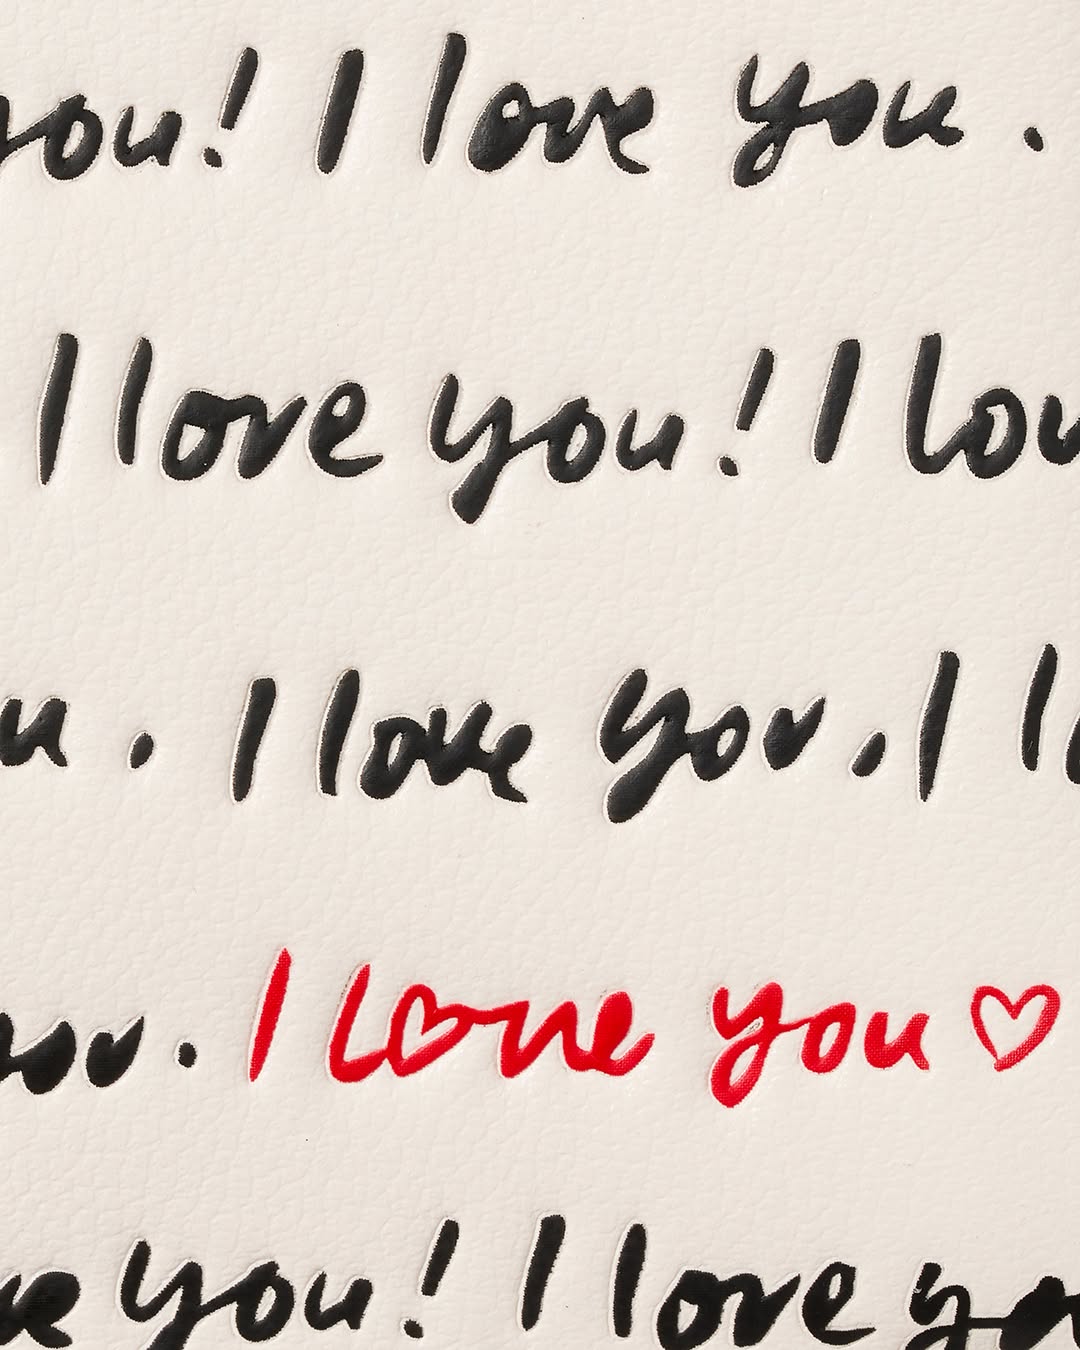 you! I love you.
I love you! I lov
u. I love you. I l
you. I love you ♡
ve you! I love yo